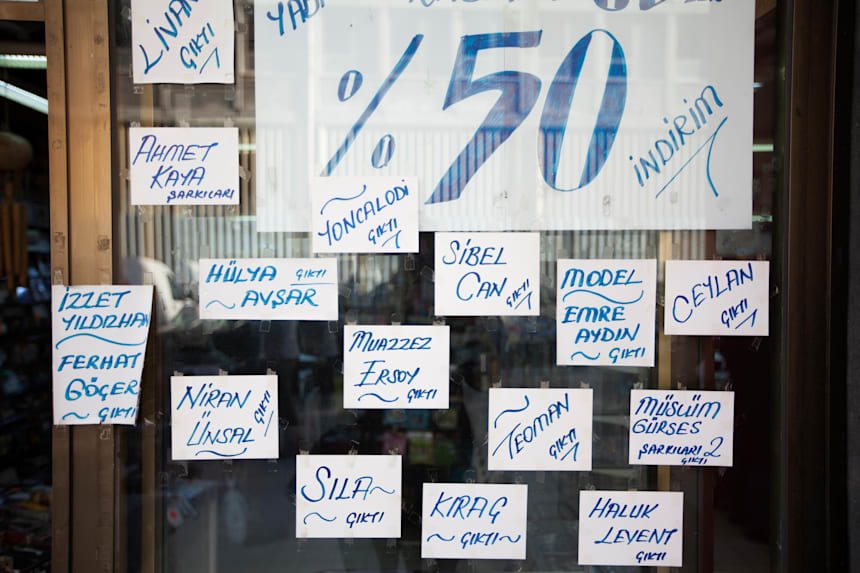 LİVAN
ÇIKTI
% 50
İNDİRİM
AHMET
KAYA
ŞARKILARI
YONCALODİ
ÇIKTI
SİBEL
CAN ÇIKTI
HÜLYA ÇIKTI
AVŞAR
MODEL
EMRE
AYDIN
ÇIKTI
CEYLAN
ÇIKTI
İZZET
YILDIZHAN
FERHAT
GÖÇER
ÇIKTI
MUAZZEZ
ERSOY
ÇIKTI
NİRAN
ÜNSAL
ÇIKTI
TEOMAN
ÇIKTI
MÜSLÜM
GÜRSES
ŞARKILARI 2
ÇIKTI
SILA
ÇIKTI
KIRAÇ
ÇIKTI
HALUK
LEVENT
ÇIKTI